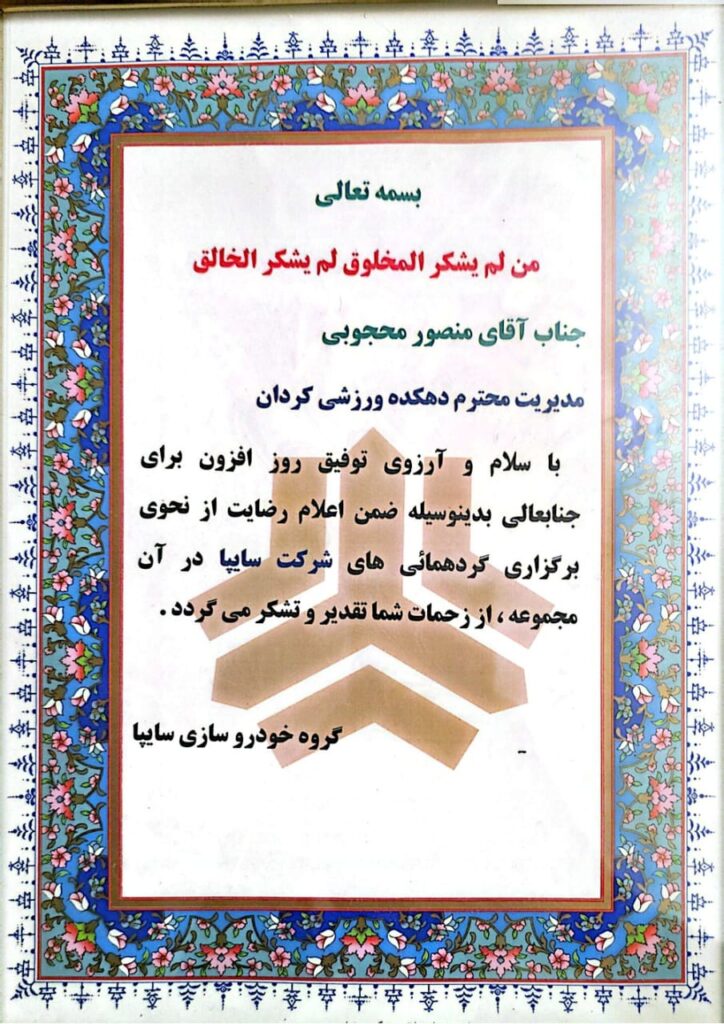 بسمه تعالی
من لم یشکر المخلوق لم یشکر الخالق
جناب آقای منصور محجوبی
مدیریت محترم دهکده ورزشی کردان
با سلام و آرزوی توفیق روز افزون برای
جنابعالی بدینوسیله ضمن اعلام رضایت از نحوی
برگزاری گردهمائی های شرکت سایپا در آن
مجموعه ، از زحمات شما تقدیر و تشکر می گردد .
گروه خودرو سازی سایپا